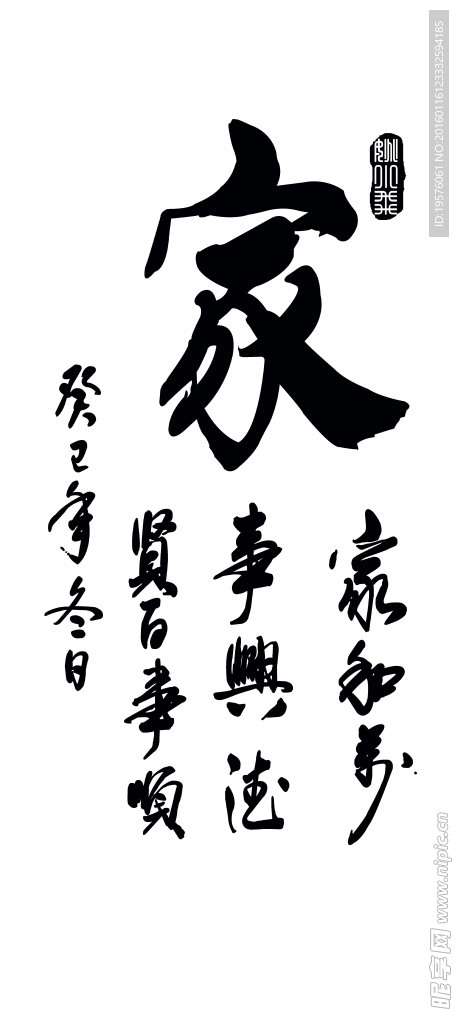 家
家和万
事興德
賢百事順
癸巳年冬日
ID:19576061 NO:20160116123332594185
昵享网 www.nipic.cn